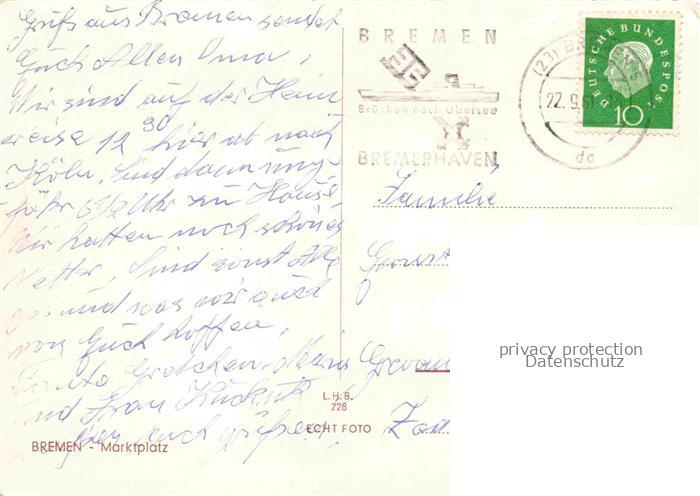 Gruß aus Bremen sendet
Euch Allen Oma,
Wir sind auf der Heim
reise 12 30 hier ab nach
Köln, sind dann unge-
fähr 6 1/2 Uhr zu Hause,
Wir hatten noch schönes
Wetter, sind sonst Alle
gesund was wir auch
von Euch hoffen,
Tante Gretchen
und Frau
auch grüßen,
BREMEN - Marktplatz
L.H.B.
228
ECHT FOTO
BREMEN
Brücken nach Übersee
BREMERHAVEN
(23) BREMEN
22.9.
da
DEUTSCHE BUNDESPOST
10
Familie
privacy protection
Datenschutz